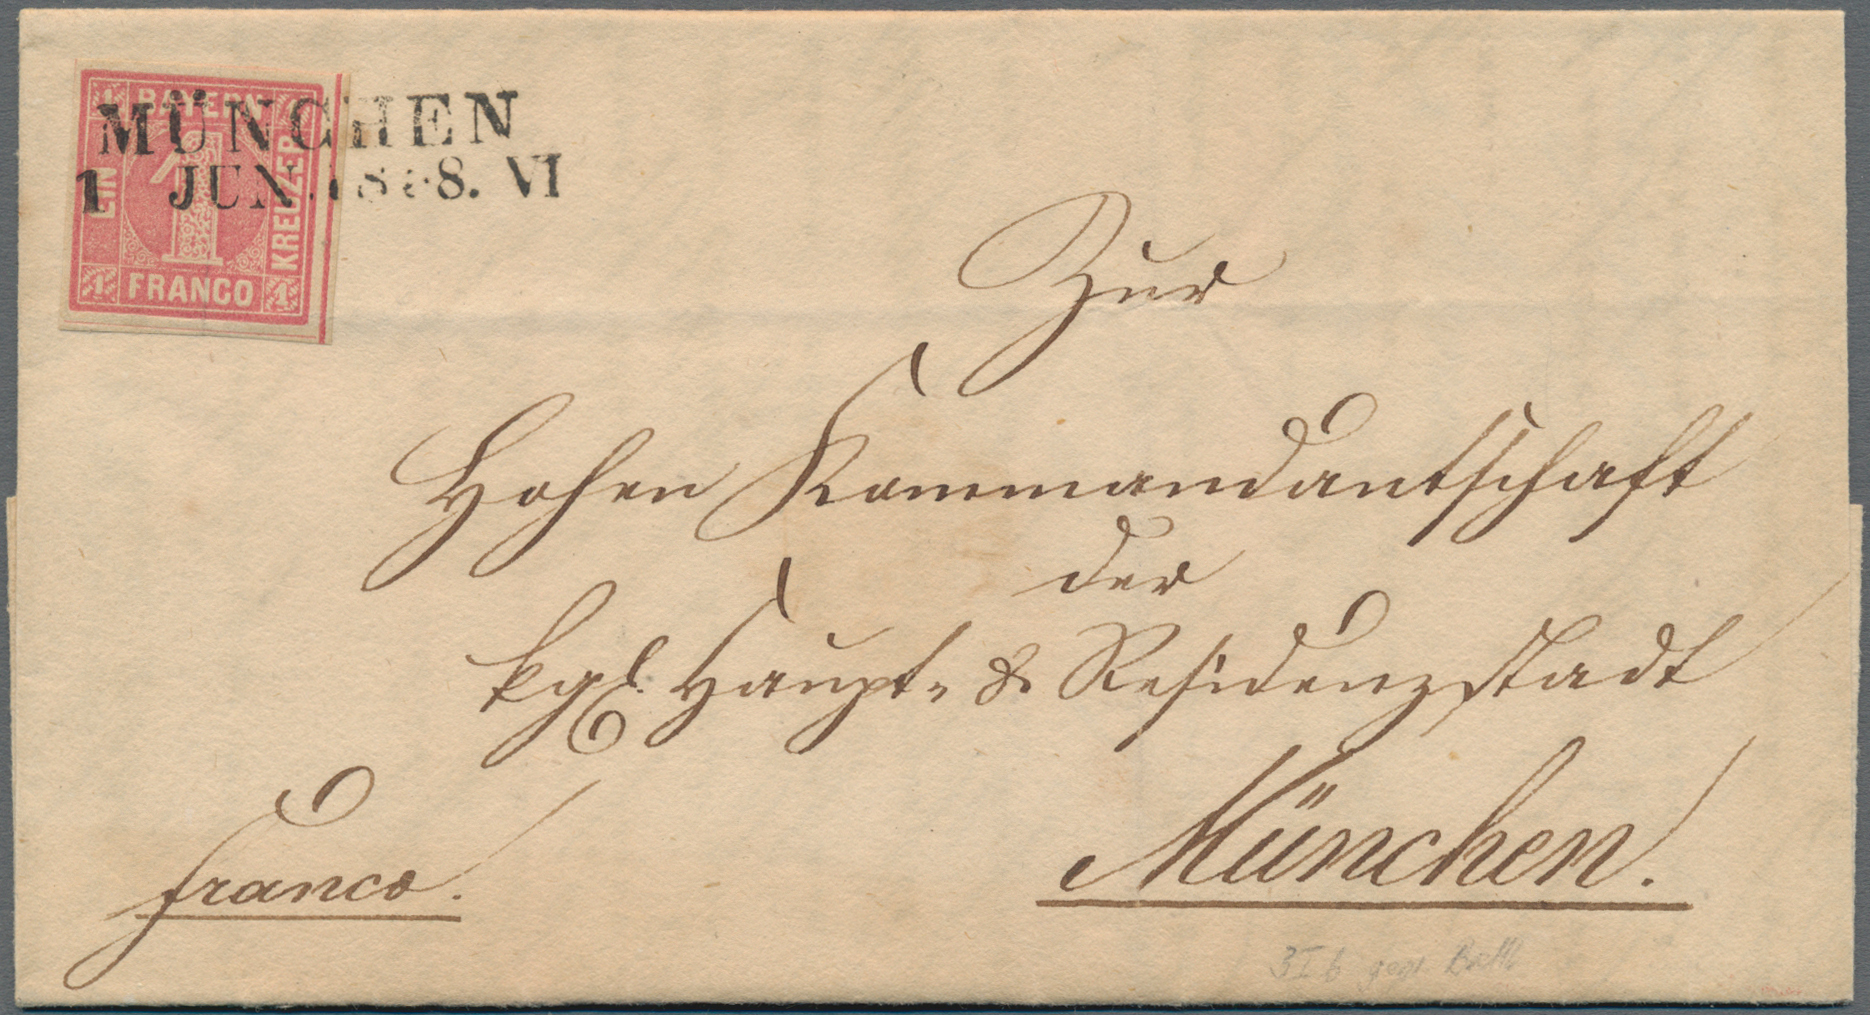 BAYERN
1
EIN
KREUZER
1 FRANCO 1
MÜNCHEN
1 JUN. 1858. VI
Zur
Hohen Kommandantschaft
der
kgl. Haupt- & Residenzstadt
München.
franco.
3 I b gepr.